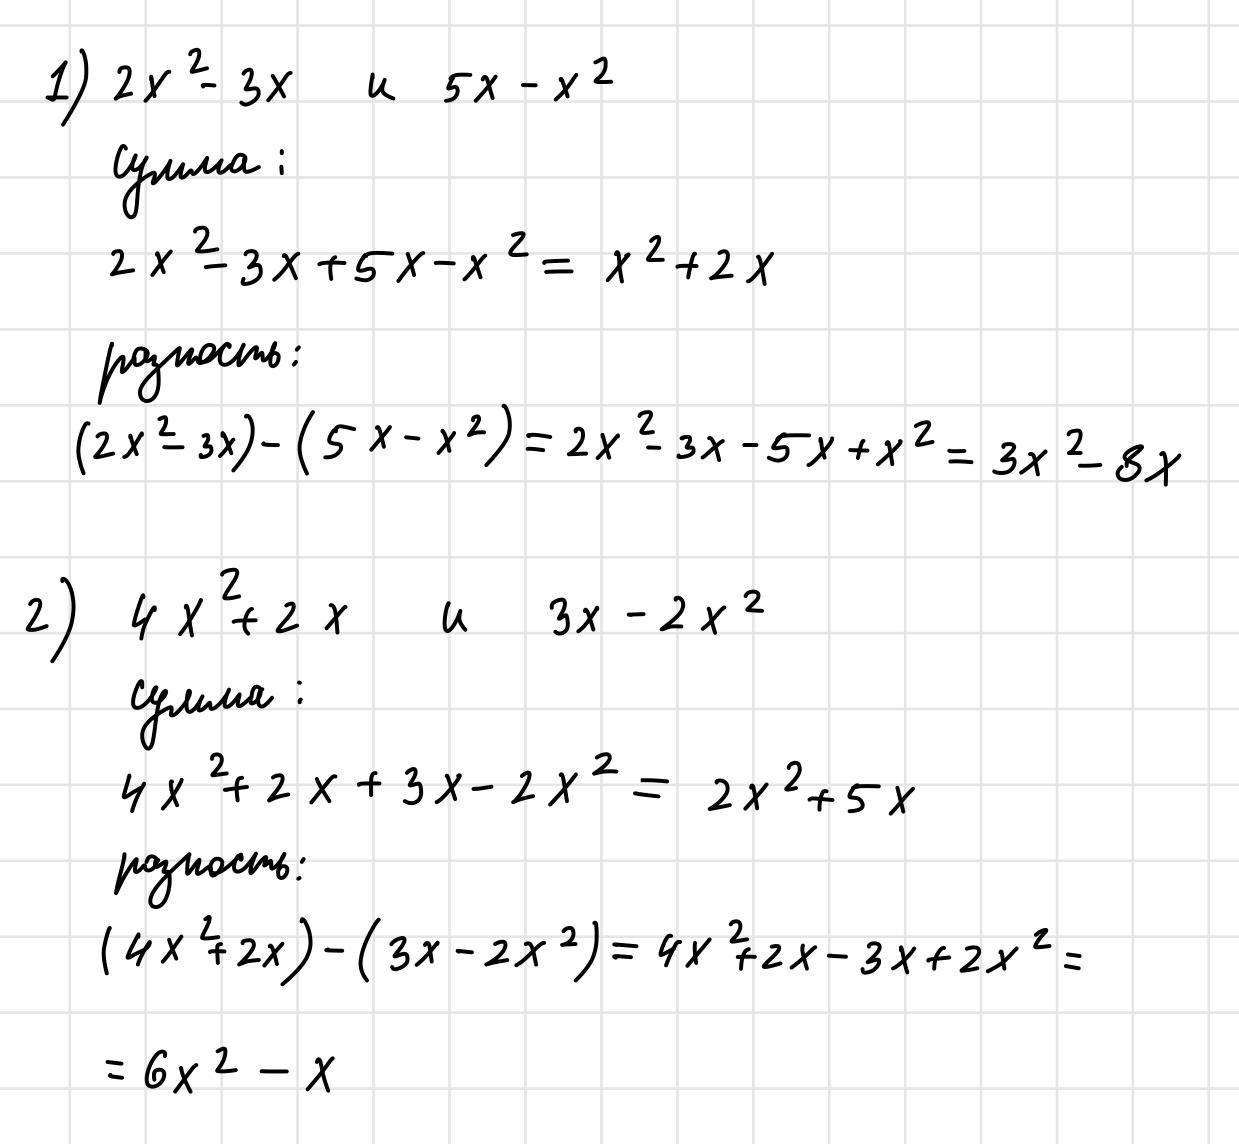 1) 2x² - 3x и 5x - x²
сумма:
2x² - 3x + 5x - x² = x² + 2x
разность:
(2x² - 3x) - (5x - x²) = 2x² - 3x - 5x + x² = 3x² - 8x
2) 4x² + 2x и 3x - 2x²
сумма:
4x² + 2x + 3x - 2x² = 2x² + 5x
разность:
(4x² + 2x) - (3x - 2x²) = 4x² + 2x - 3x + 2x² =
= 6x² - x